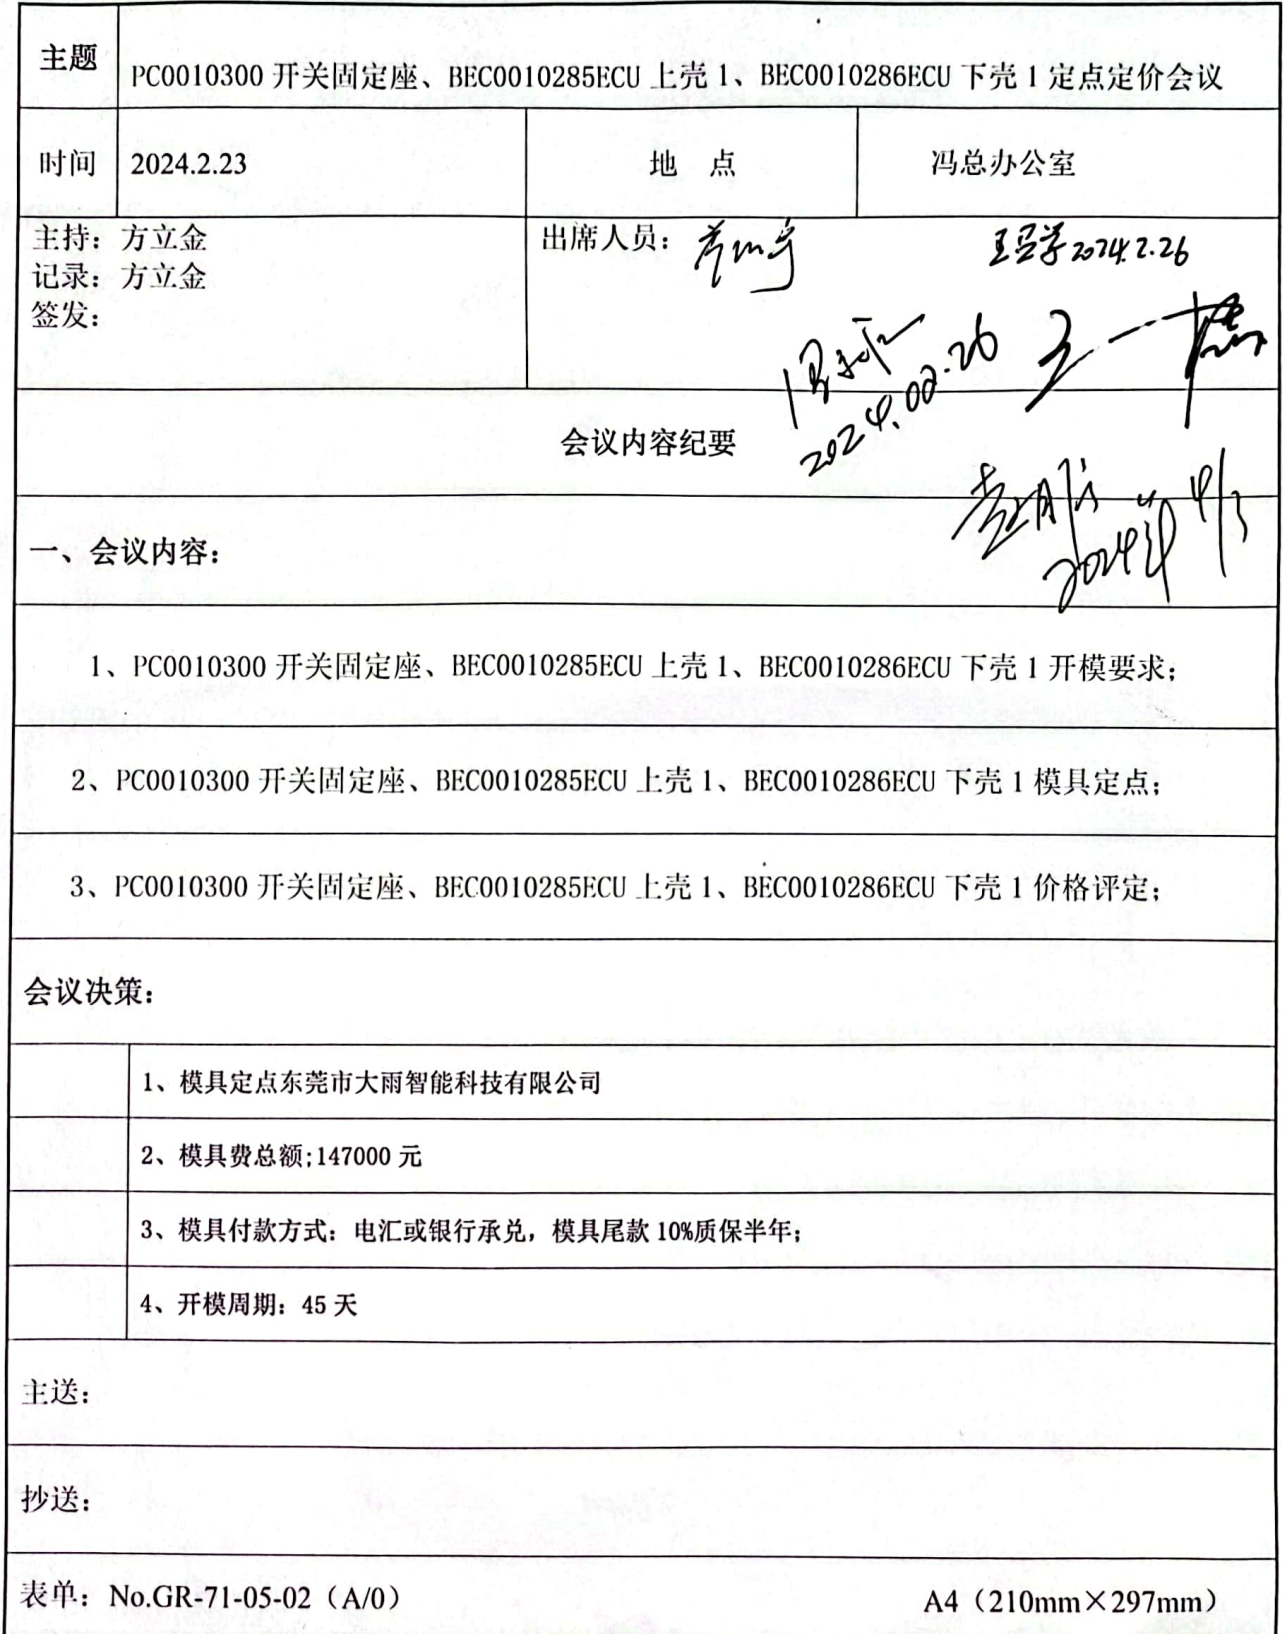 主题
PC0010300 开关固定座、BEC0010285ECU 上壳 1、BEC0010286ECU 下壳 1 定点定价会议
时间 2024.2.23 地 点 冯总办公室
主持：方立金
记录：方立金
签发：
出席人员：
2024.2.26
2024.02.26
会议内容纪要
一、会议内容：
1、PC0010300 开关固定座、BEC0010285ECU 上壳 1、BEC0010286ECU 下壳 1 开模要求；
2、PC0010300 开关固定座、BEC0010285ECU 上壳 1、BEC0010286ECU 下壳 1 模具定点；
3、PC0010300 开关固定座、BEC0010285ECU 上壳 1、BEC0010286ECU 下壳 1 价格评定；
会议决策：
1、模具定点东莞市大雨智能科技有限公司
2、模具费总额;147000 元
3、模具付款方式：电汇或银行承兑，模具尾款 10%质保半年；
4、开模周期：45 天
主送：
抄送：
表单：No.GR-71-05-02（A/0） A4（210mm×297mm）